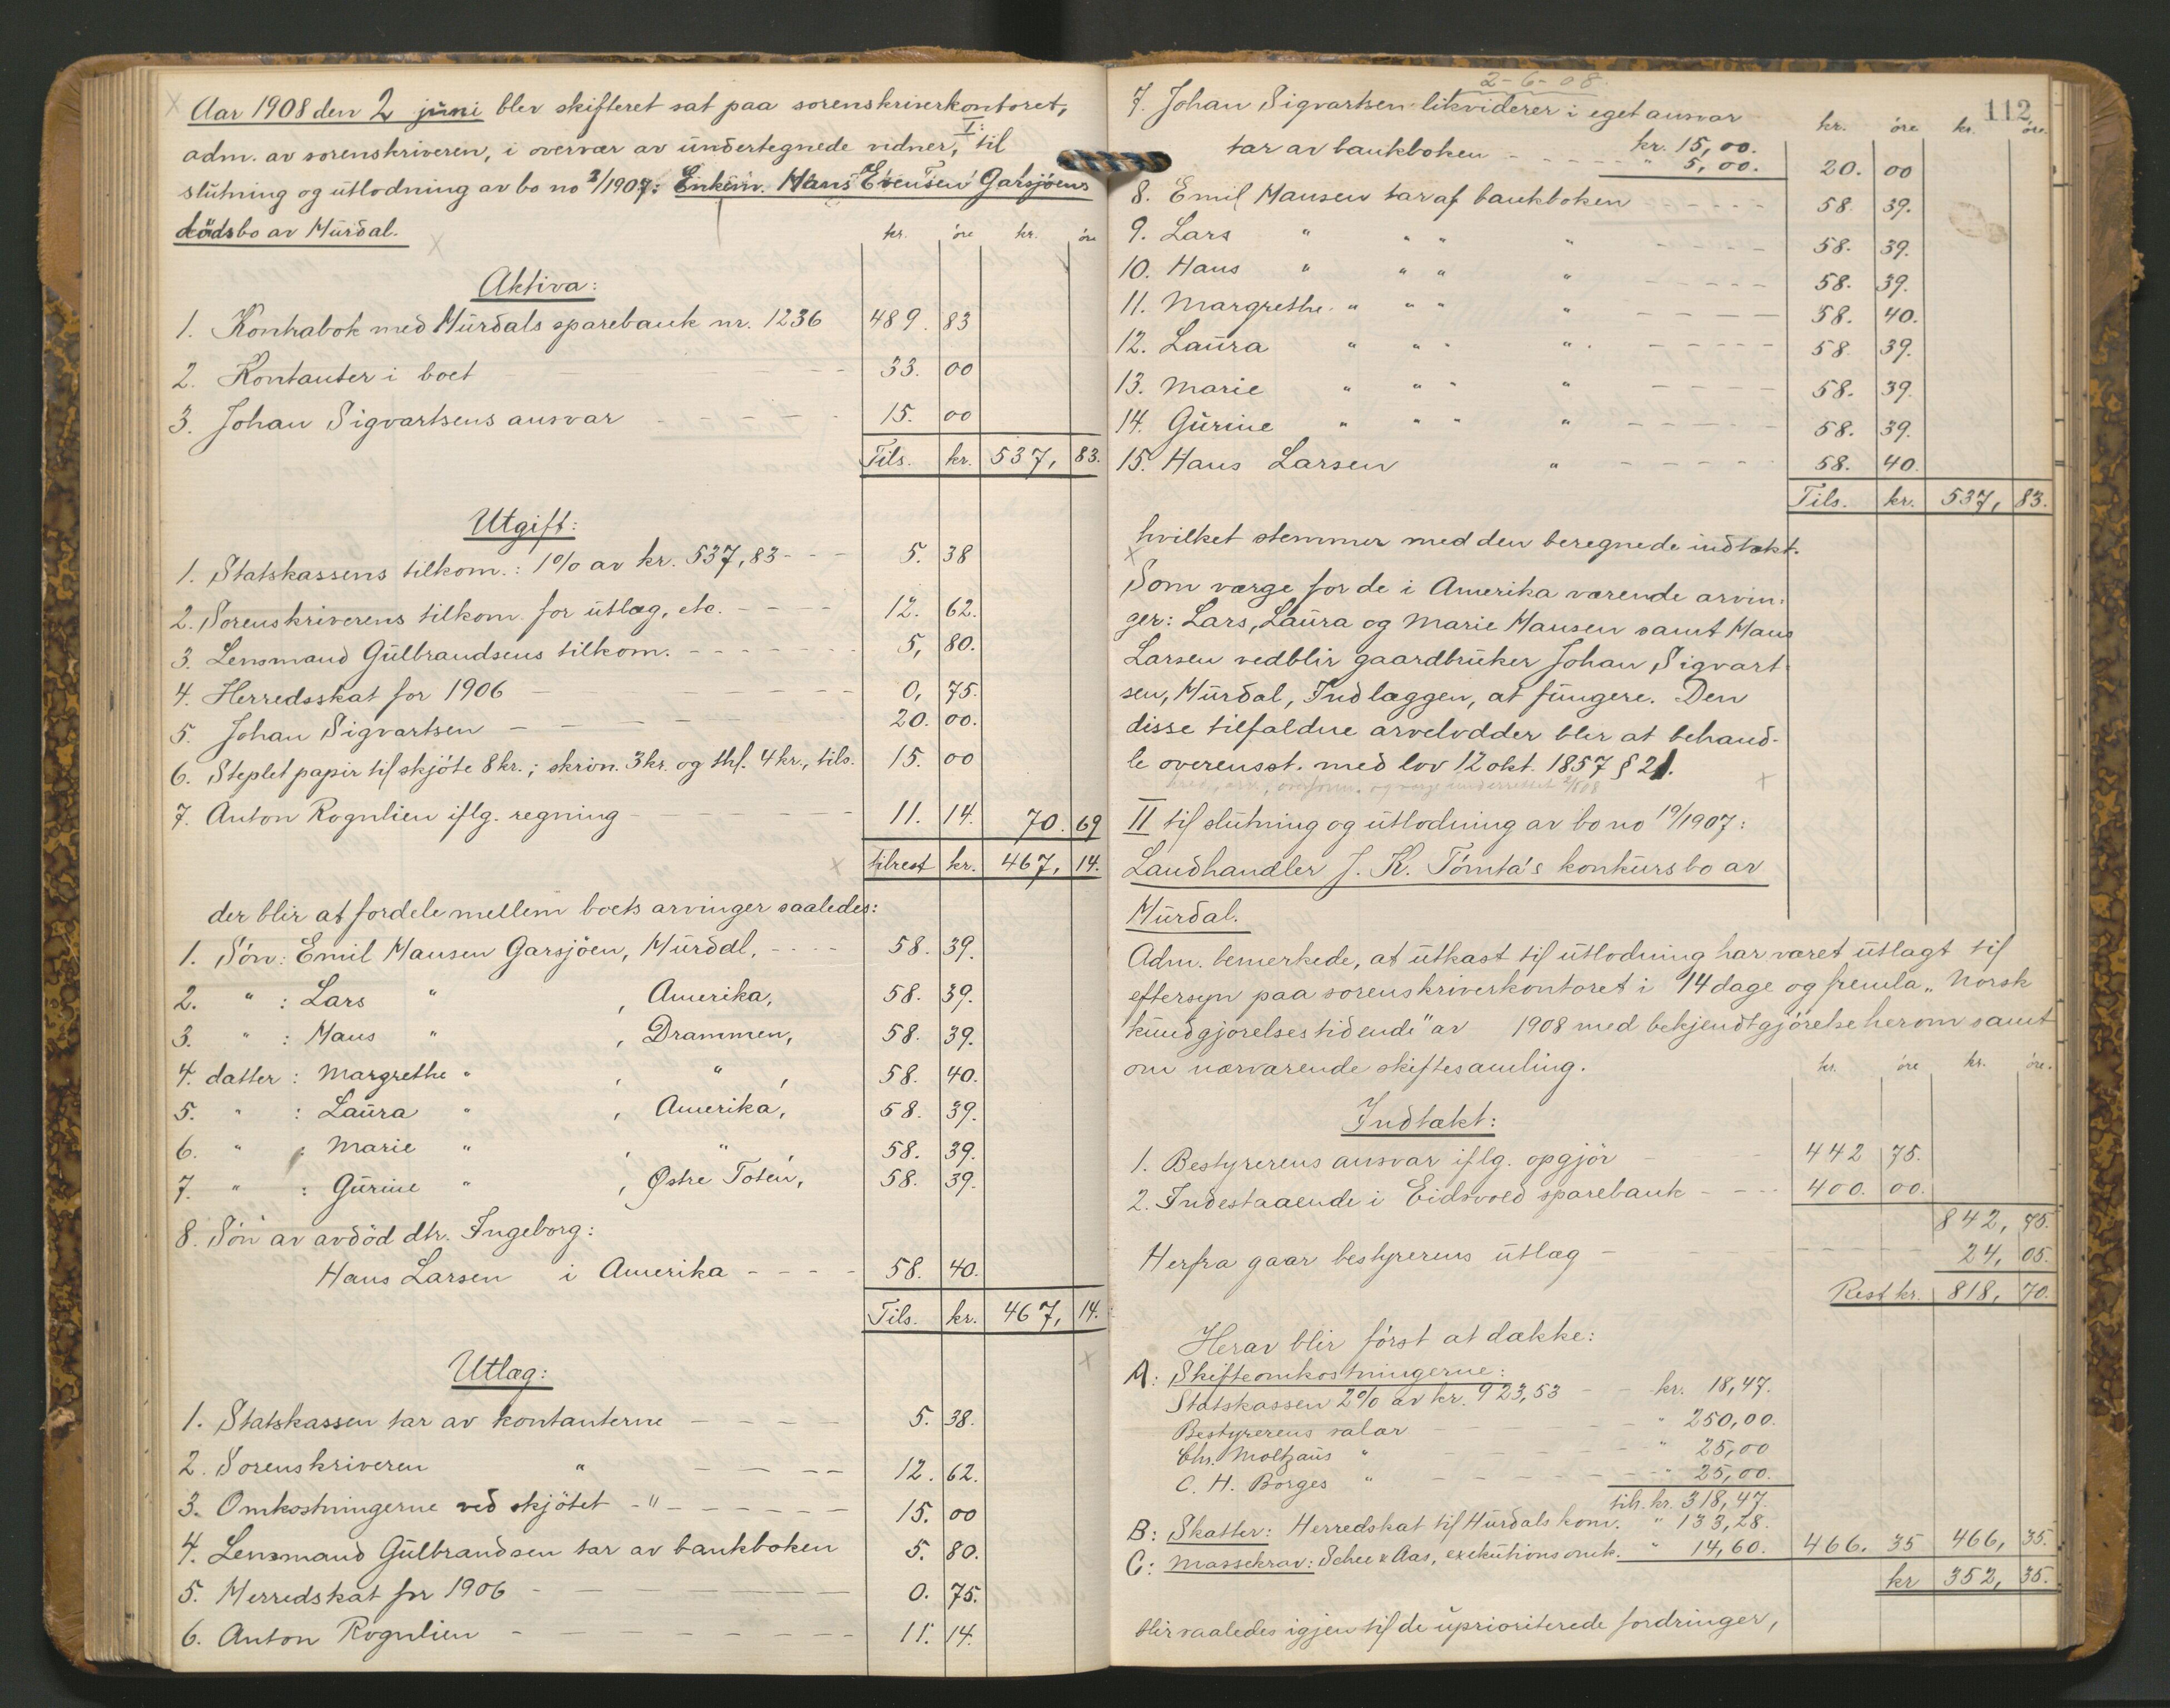 Aar 1908 den 2 juni blev skifteret sat paa sorenskriverkontoret,
adm. av sorenskriveren, i overvær av undertegnede vidner, I: til
slutning og utlodning av bo no 2/1907: Enkem. Hans Evensen Garsjöens
dödsbo av Hurdal.
kr. öre kr. öre
Aktiva:
1. Kontrabok med Hurdals sparebank nr. 1236 489. 83
2. Kontanter i boet 33. 00
3. Johan Sigvartsens ansvar 15. 00
Tils. kr. 537, 83.
Utgift:
1. Statskassens tilkom.: 1% av kr. 537,83 5. 38
2. Sorenskriverens tilkom. for utlæg, etc. 12. 62.
3. Lensmand Gulbrandsens tilkom. 5, 80.
4. Herredsskat for 1906 0, 75.
5. Johan Sigvartsen 20. 00.
6. Steplet papir til skjöte 8 kr.; skriv. 3 kr. og thl. 4 kr., tils. 15. 00
7. Anton Rognlien iflg. regning 11. 14. 70. 69
tilrest kr. 467, 14.
der blir at fordele mellem boets arvinger saaledes:
1. Sön: Emil Hansen Garsjöen, Hurdal, 58. 39.
2. " : Lars " , Amerika, 58. 39.
3. " : Hans " , Drammen, 58. 39.
4. datter : Margrethe " , " , 58. 40.
5. " : Laura " , Amerika, 58. 39.
6. " : Marie " , " , 58. 39.
7. " : Gurine " , Østre Toten, 58. 39.
8. Sön av avdöd dtr. Ingeborg:
Hans Larsen i Amerika 58. 40.
Tils. kr. 467, 14.
Utlæg:
1. Statskassen tar av kontanterne 5. 38.
2. Sorenskriveren " 12. 62.
3. Omkostningerne ved skjötet " 15. 00
4. Lensmand Gulbrandsen tar av bankboken 5. 80.
5. Herredskat for 1906 0. 75.
6. Anton Rognlien 11. 14.
2-6-08.
112
7. Johan Sigvartsen likviderer i eget ansvar kr. 15,00. kr. öre kr. öre.
tar av bankboken " 5,00. 20. 00
8. Emil Hansen tar af bankboken 58. 39.
9. Lars " " " " 58. 39.
10. Hans " " " " 58. 39.
11. Margrethe " " " " 58. 40.
12. Laura " " " " 58. 39.
13. Marie " " " " 58. 39.
14. Gurine " " " " 58. 39.
15. Hans Larsen " 58. 40.
Tils. kr. 537, 83.
hvilket stemmer med den beregnede indtækt.
Som værge for de i Amerika værende arvin-
ger: Lars, Laura og Marie Hansen samt Hans
Larsen vedblir gaardbruker Johan Sigvart-
sen, Hurdal, Indlæggen, at fungere. Den
disse tilfaldne arvelodder blir at behand-
le overensst. med lov 12 okt. 1857 § 21.
II til slutning og utlodning av bo no 19/1907:
Landhandler J. K. Tömta's konkursbo av
Hurdal.
Adm. bemerkede, at utkast til utlodning har været utlagt til
eftersyn paa sorenskriverkontoret i 14 dage og fremla „Norsk
kundgjörelsestidende" av 1908 med bekjendtgjörelse herom samt
om nærværende skiftesamling. kr. öre kr. öre.
Indtækt:
1. Bestyrerens ansvar iflg. opgjör 442 75.
2. Indestaaende i Eidsvold sparebank 400. 00.
842, 75.
Herfra gaar bestyrerens utlæg 24, 05.
Rest kr. 818, 70.
Herav blir först at dække:
A: Skifteomkostningerne:
Statskassen 2% av kr. 923,53 kr. 18,47.
Bestyrerens salær " 250,00.
Chr. Moltzaus " " 25,00
C. H. Borges " " 25,00.
tils. kr. 318,47.
B: Skatter: Herredskat til Hurdals kom. " 133,28.
C: Massekrav: Schee & Aas, exekutionsomk. " 14,60. 466. 35 466, 35.
kr 352, 35.
blir saaledes igjen til de uprioriterede fordringer,